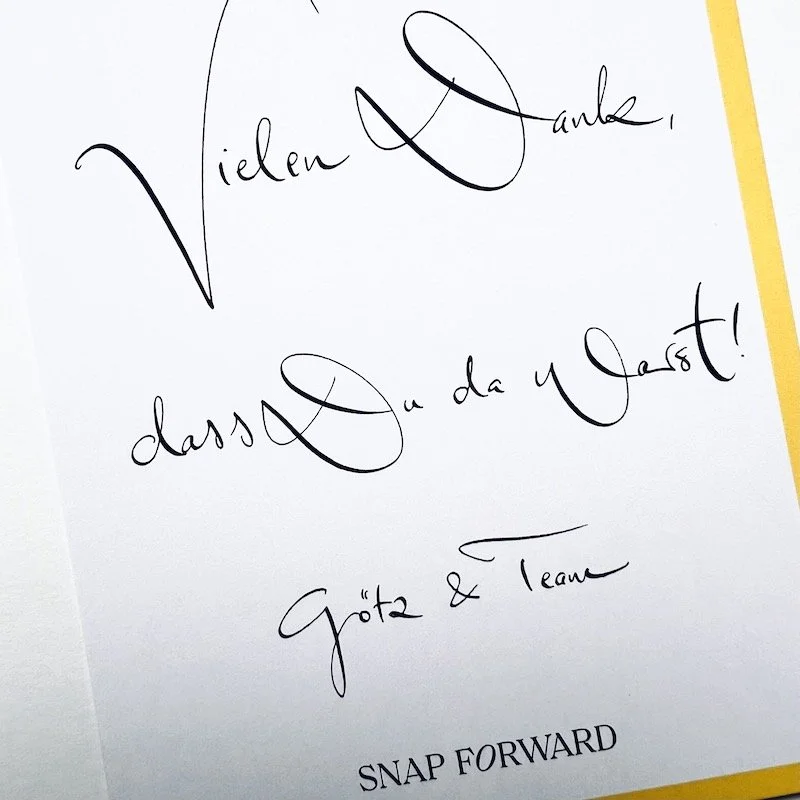 Vielen Dank,
dass Du da warst!
Götz & Team
SNAP FORWARD